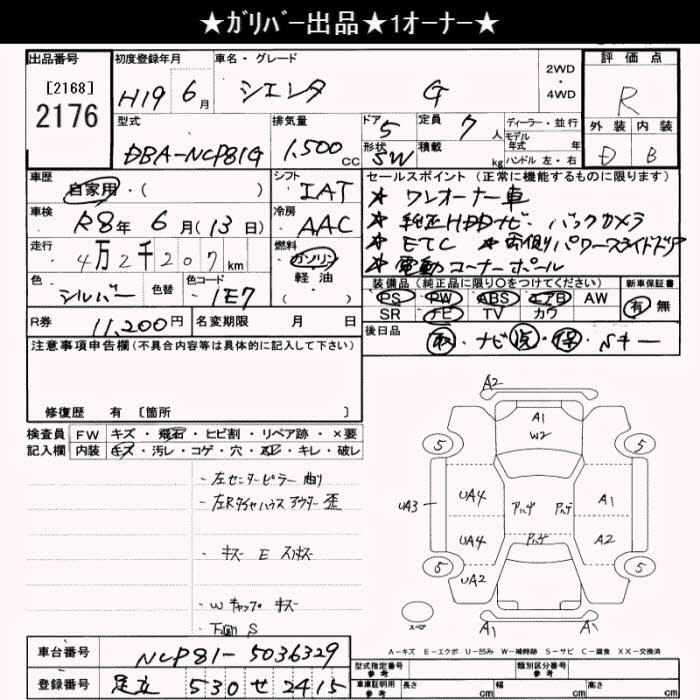 ★ｶﾞﾘﾊﾞｰ出品★1オーナー★
出品番号 [2168] 2176
初度登録年月 H19年 6月
車名・グレード シエンタ G
2WD・4WD
評価点 R
外装 D 内装 B
型式 DBA-NCP81G
排気量 1,500cc
ドア 5 形状 SW
定員 7人
積載 kg
ディーラー・並行
モデル年式 年式
ハンドル 左・右
車歴 自家用・( )
シフト IAT
車検 R8年 6月(13日)
冷房 AAC
走行 4万2千207km
燃料 ガソリン 軽油 ( )
色 シルバー 色替 色コード 1E7
R券 11,200円 名変期限 月 日
セールスポイント (正常に機能するものに限ります)
★ ワンオーナー車
★ 純正HDDナビ・バックカメラ
★ ETC ★ 両側パワースライドドア
★ 電動コーナーポール
装備品(純正品に限り○をつけてください)
PS・PW・ABS・エアB・AW
SR・ナビ・TV・カワ
新車保証書 有・無
後日品 取・ナビ取・保・Sキー
注意事項申告欄(不具合内容等は具体的に記入して下さい)
修復歴 有 〔箇所 〕
検査員記入欄
FW キズ・飛石・ヒビ割・リペア跡・×要
内装 キズ・汚レ・コゲ・穴・凹・キレ・破レ
・左センターピラー 曲り
・左Rタイヤハウス アウター 歪
・キズ E スリキズ
・Wキャップ キズ
・下廻り S
A2
A1
W2
5 5
UA3 UA4 A1
UA4 A2
5 UA2 5
スペア A1 A1
A-キズ E-エクボ U-凹み W-補修跡 S-サビ C-腐食 XX-交換済
車台番号 NCP81-5036329
登録番号 足立 530 せ 2415
型式指定番号 参考
類別区分番号 参考
車庫証明用 参考 長さ cm 幅 cm 高さ cm